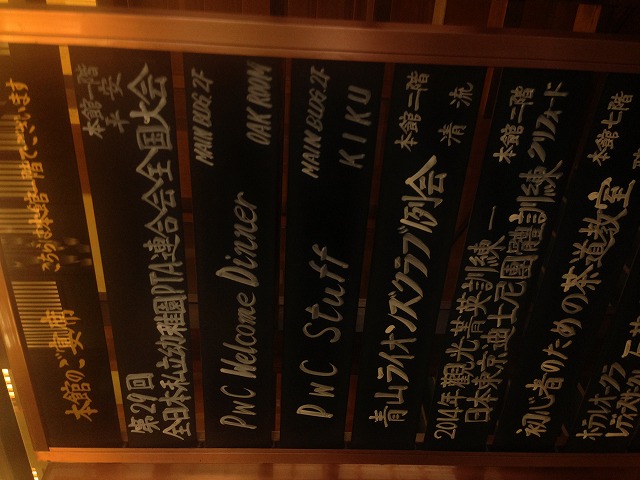 こちらは本館一階でございます
本館のご宴席
第29回
全日本私立幼稚園PTA連合会全国大会
本館一階
平安
PwC Welcome Dinner
MAIN BLDG. 2F
OAK ROOM
PwC Stuff
MAIN BLDG. 2F
KIKU
青山ライオンズクラブ例会
本館二階
清流
2014年 觀光菁英訓練 一
日本東京迪士尼團體訓練
本館二階
クリフォード
初心者のための茶道教室
本館七階